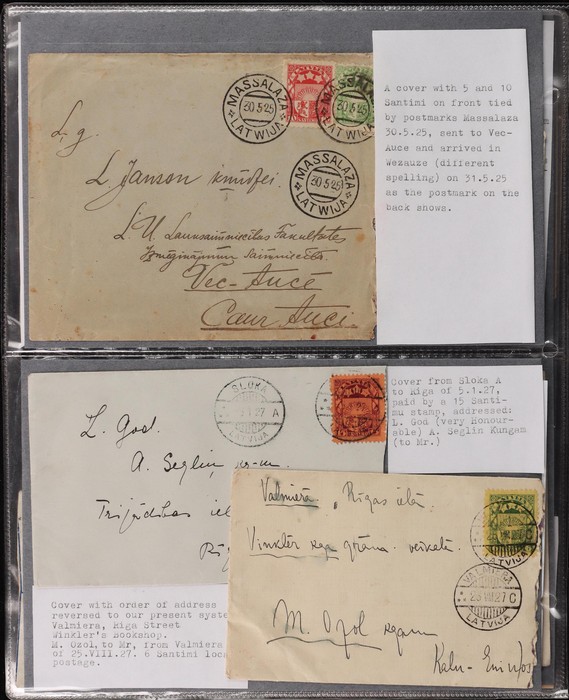 MASSALAZA
30.5.25
LATWIJA
MASSALAZA
30.5.25
LATWIJA
MASSALAZA
30.5.25
LATWIJA
L. g.
L. Janson kundzei.
L. U. Lauksaimniecības Fakultātes
Izmēģinājumu saimniecībā.
Vec-Aucē
Caur Auci.
A cover with 5 and 10
Santimi on front tied
by postmarks Massalaza
30.5.25, sent to Vec-
Auce and arrived in
Wezauze (different
spelling) on 31.5.25
as the postmark on the
back shows.
SLOKA
1.27 A
LATVIJA
L. God.
A. Segliņ
Trijādības
Cover from Sloka A
to Riga of 5.1.27,
paid by a 15 Santi-
mu stamp, addressed:
L. God (very Honour-
able) A. Seglin Kungam
(to Mr.)
Valmierā, Rīgas ielā.
Vinkler kga grāma. veikalā.
M. Ozol kungam
LATVIJA
VALMIERA
25 VIII 27 C
LATVIJA
Cover with order of address
reversed to our present syste
Valmiera, Riga Street
Winkler's Bookshop.
M. Ozol, to Mr, from Valmiera
of 25.VIII.27. 6 Santimi loc
postage.